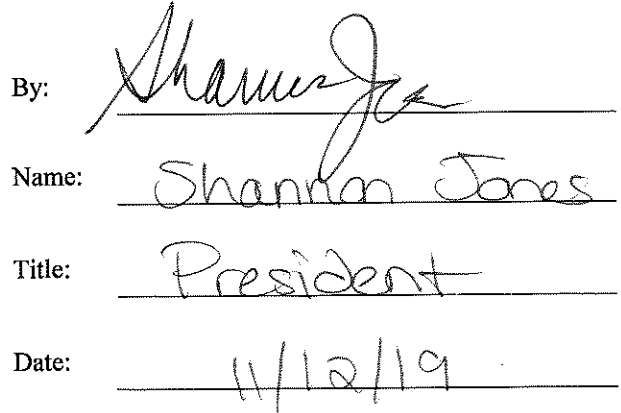 By: Shannon Jones
Name: Shannon Jones
Title: President
Date: 11/12/19